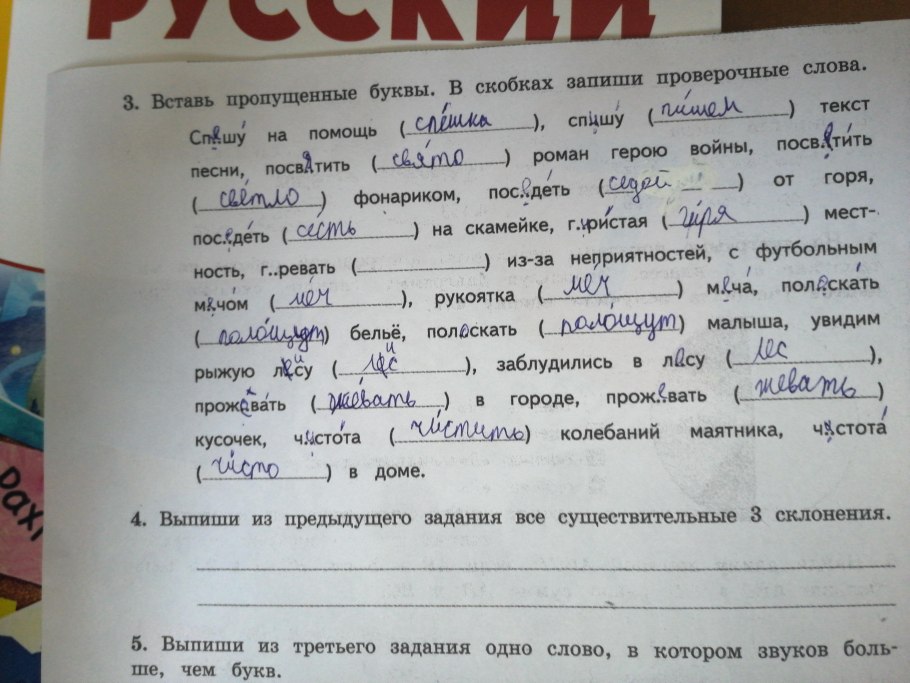 РУССКИЙ
3. Вставь пропущенные буквы. В скобках запиши проверочные слова.
Спешу́ на помощь (спе́шка), спишу́ (пи́шем) текст
песни, посвятить (свя́то) роман герою войны, посвети́ть
(све́тло) фонариком, поседе́ть (седой) от горя,
посиде́ть (се́сть) на скамейке, г..ри́стая (ги́ря) мест-
ность, г..ревать () из-за неприятностей, с футбольным
мечо́м (ме́ч), рукоятка (ме́ч) меча́, поласка́ть
(поло́щут) бельё, поласкать (поло́щут) малыша, увидим
рыжую лису (лис), заблудились в лесу (лес),
прожева́ть (жевать) в городе, прожевать (жевать)
кусочек, чистота (чи́стить) колебаний маятника, чистота́
(чи́сто) в доме.
4. Выпиши из предыдущего задания все существительные 3 склонения.
5. Выпиши из третьего задания одно слово, в котором звуков боль-
ше, чем букв.